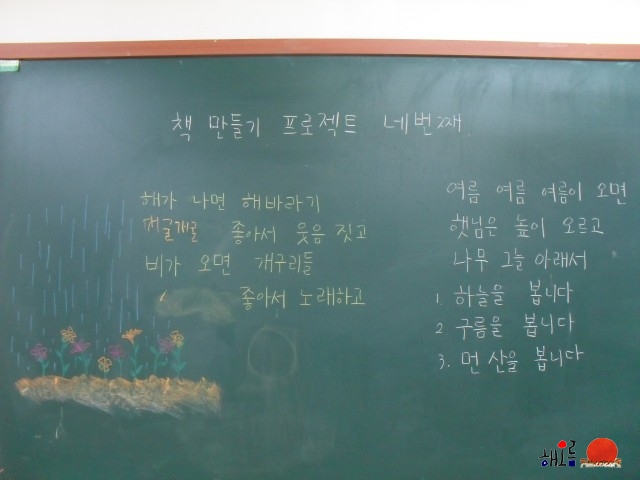 책 만들기 프로젝트 네번째
해가 나면 해바라기
좋아서 웃음 짓고
비가 오면 개구리들
좋아서 노래하고
여름 여름 여름이 오면
햇님은 높이 오르고
나무 그늘 아래서
1. 하늘을 봅니다
2. 구름을 봅니다
3. 먼 산을 봅니다
해오름